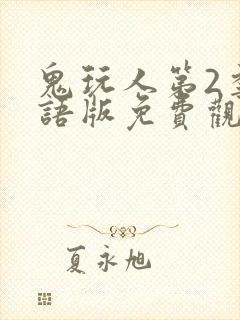 鬼玩人第2
語版免費觀
夏永旭